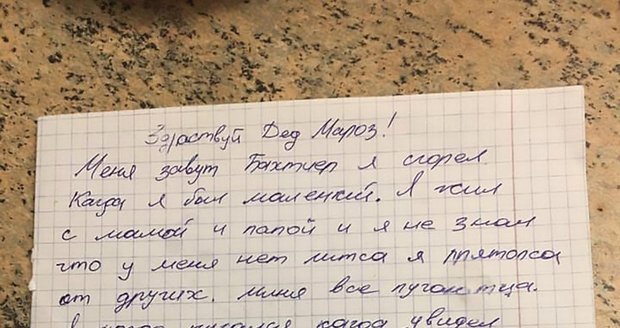 Здраствуй Дед Мароз!
Меня завут Бахтиер я сгорел
Кагда я был маленкий. Я жил
с мамой и папой и я не знал
что у меня нет литса я прятолса
от других. миня все пугаютца.
кагда увидел